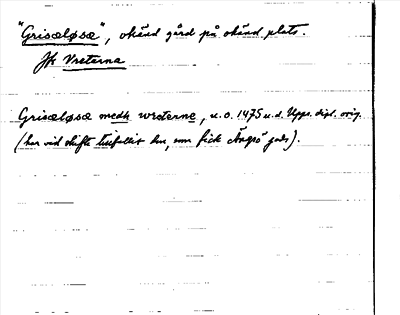 "Grisæløsæ", okänd gård på okänd plats.
Jfr Vreterna
Grisæløsæ medh wreterne, u.o. 1475 u.d. Upps. dipl. orig.
(har vid skifte tillfallit hm, som fick Ängsö gods).